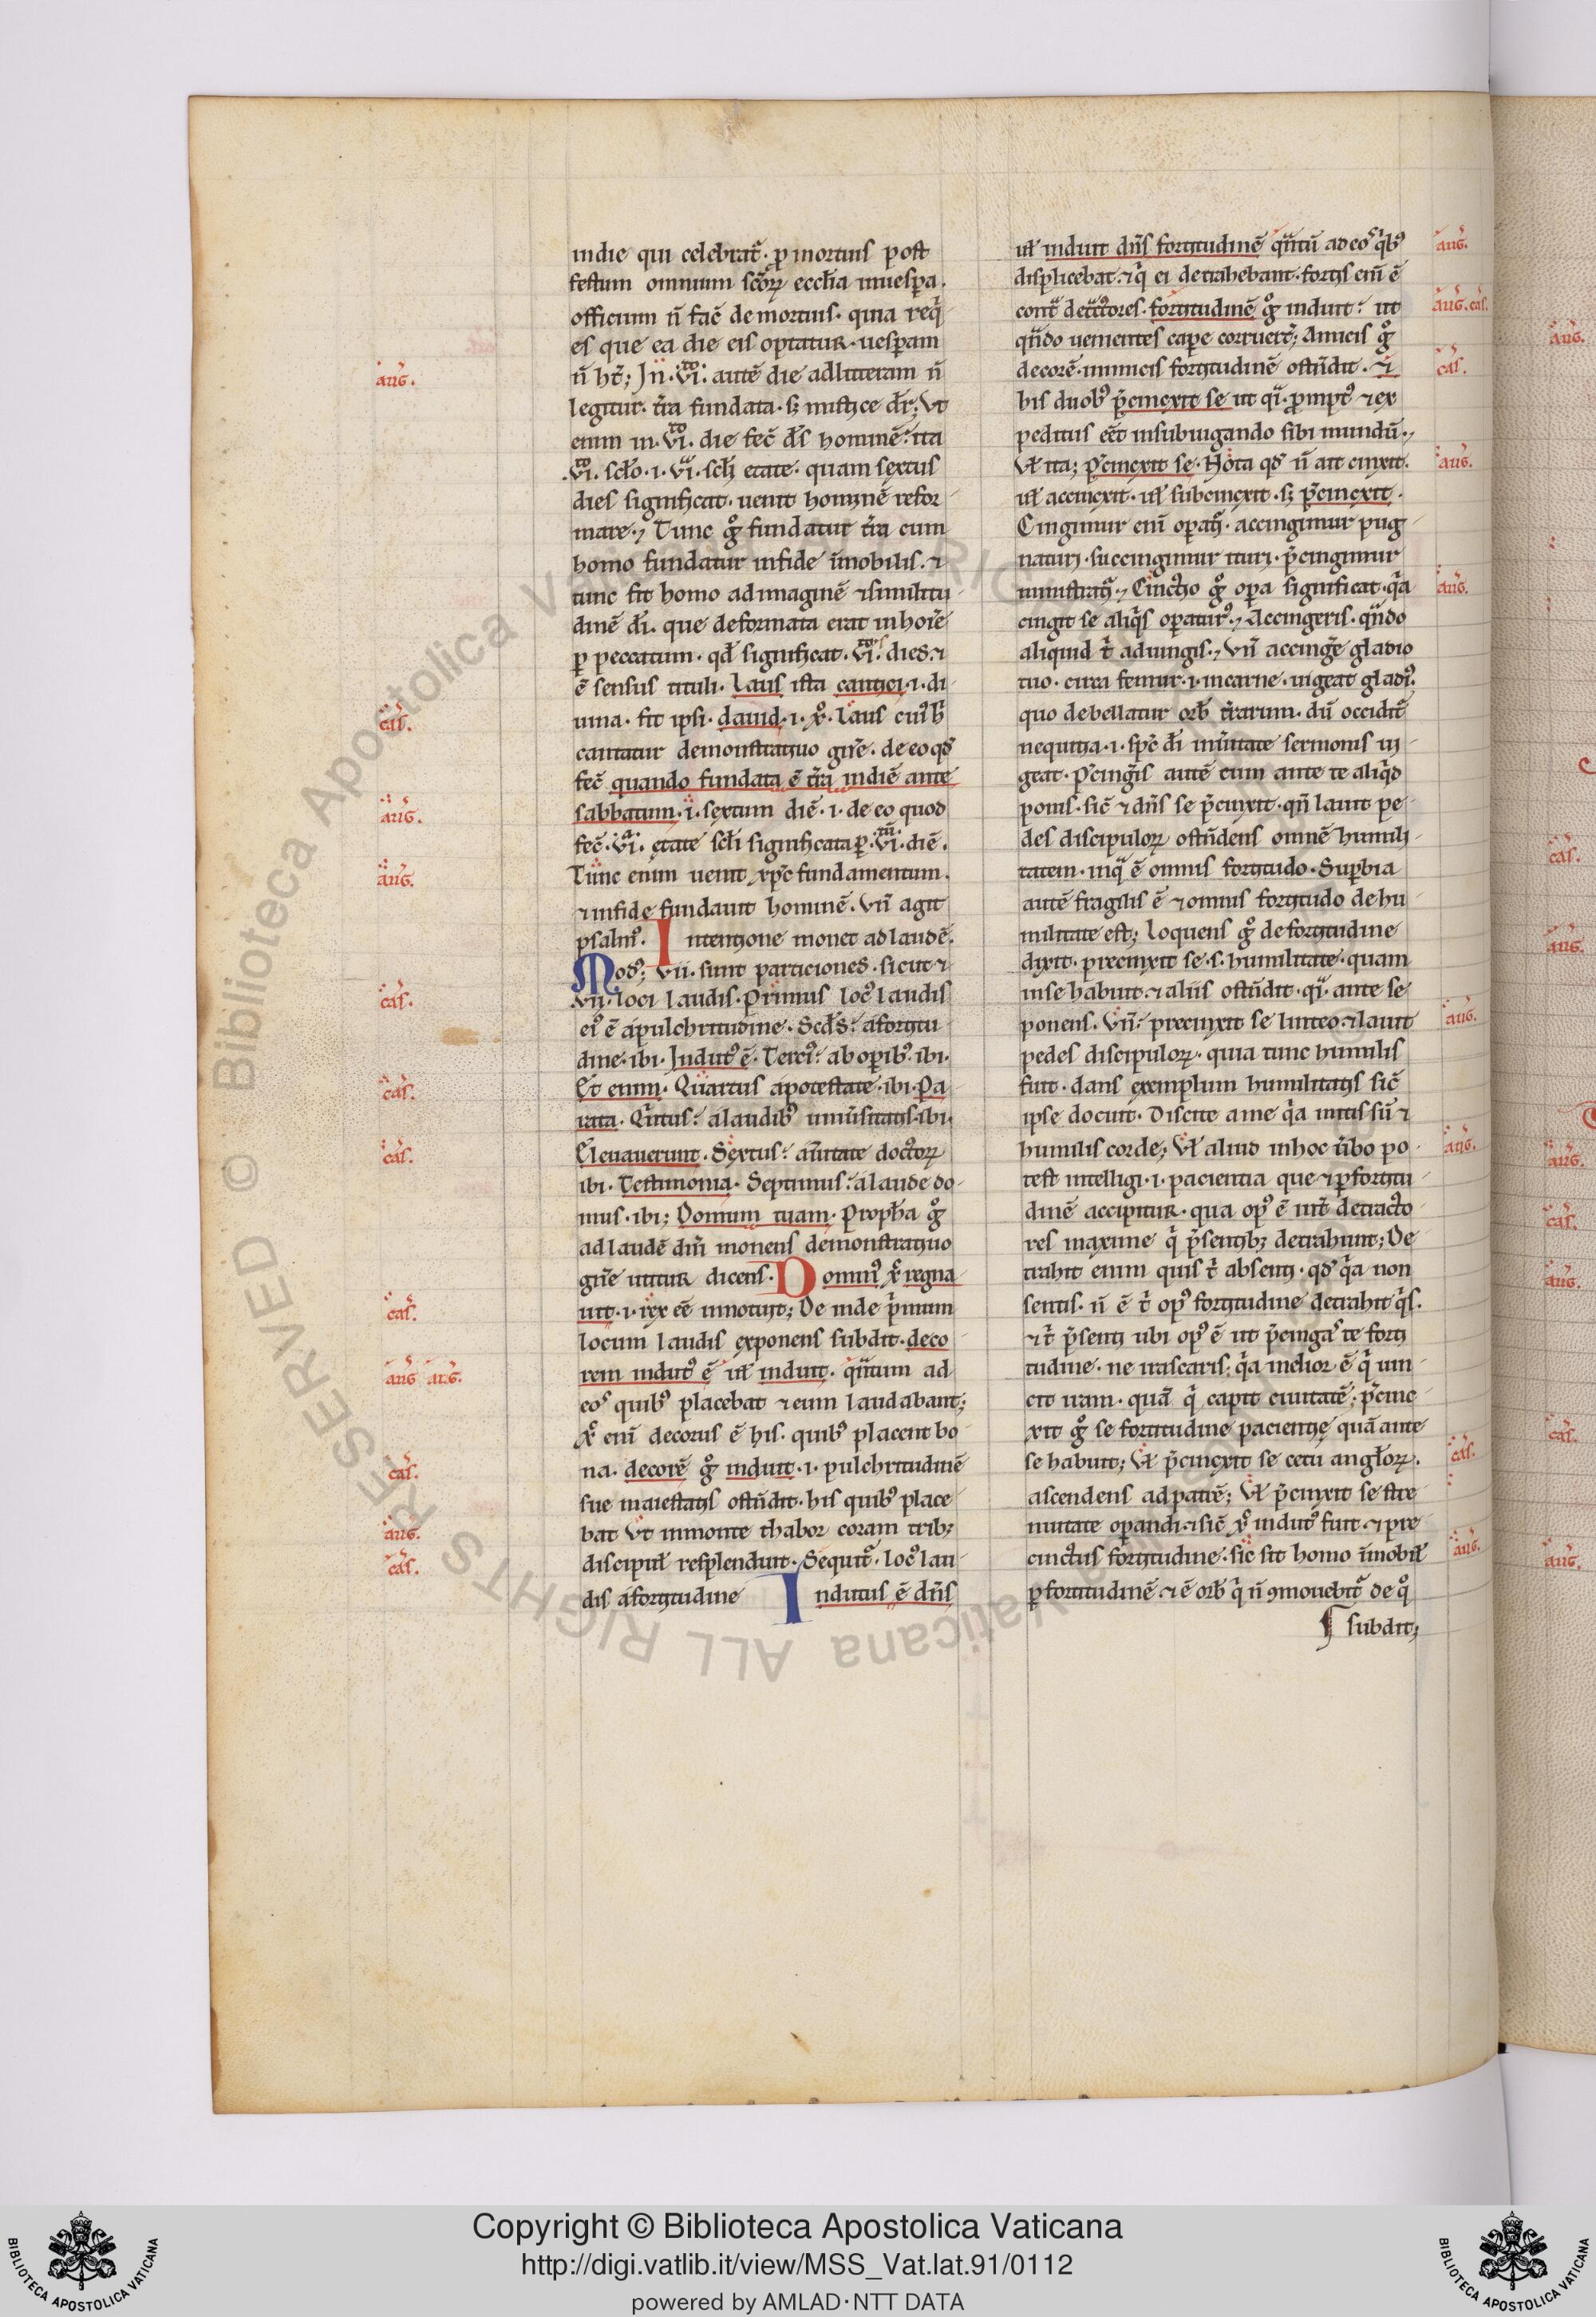 indie qui celebrat᷑. ꝓ mortuis post
festum omnium scõꝝ eccl̃ia inuesꝑa.
officium ñ fac̃ de mortuis. quia req̇
es que ea die eis optatur. uesꝑam
ñ ht̃; In .vi. autẽ die ad litteram ñ
legitur. t̃ra fundata. sꝫ mistice dr̃; Vt
enim in .vi. die fec̃ ds̃ hominẽ. ita
.vi. sclo .i. vi. sclꝫ etate. quam sextus
dies significat. uenit hominẽ refor
mare. Tunc gͦ fundatur t̃ra cum
homo fundatur in fide im̃obilis. ⁊
tunc fit homo ad imaginẽ ⁊ similitu
dinẽ dĩ. que deformata erat in hoĩe
ꝑ peccatum. qd̃ significat .vi. dies. ⁊
ẽ sensus tituli. Laus ista cantici .i. di
uina. fit ipsi. dauid .i. xͦ. Laus cuiꝰ
cantatur demonstratiuo gñe. de eo qd̃
fec̃ quando fundata ẽ t̃ra in diẽ ante
sabbatum .i. sextum diẽ .i. de eo quod
fec̃ .vi. etate scl̃i significata ꝑ .vi. diẽ.
Tunc enim uenit xp̃c fundamentum.
⁊ in fide fundauit hominẽ. Vñ agit
psalmꝰ. Intentione monet ad laudẽ.
Modꝰ; vii. sunt particiones. sicut ⁊
vii. loci laudis. Primus locꝰ laudis
eiꝰ ẽ a pulchritudine. Scds̃ a fortitu
dine. ibi. Indutꝰ ẽ. Terciꝰ ab oꝑibꝰ. ibi.
Et enim. Quartus a potestate. ibi. Pa
rata. Qͥntus a laudibꝰ uniũsitatis. ibi.
Eleuauerunt. Sextus a ũitate doctorꝝ
ibi. Testimonia. Septimus a laude do
mus. ibi; Domum tuam. Proph̃a gͦ
ad laudẽ dñi monens demonstratiuo
gñe utitur dicens. Dominꝰ xͤ regna
uit .i. rex eẽ innotuit; De inde pͥmum
locum laudis exponens subdit. deco
rem indutꝰ ẽ ul̃ induit. qᷓntum ad
eoꝰ quibꝰ placebat ⁊ eum laudabant;
xͤ enĩ decorus ẽ his. quibꝰ placent bo
na. decorẽ gͦ induit .i. pulchritudinẽ
sue maiestatis ostñdit. his quibꝰ place
bat Vt in monte thabor coram tribꝫ
discipul̃ resplenduit. Sequit᷑. locꝰ lau
dis a fortitudine Indutus ẽ dñs
ul̃ induit dñs fortitudinẽ qᷓntũ ad eoꝰ qͥbꝰ
displicebat. ⁊ qͥ ei detrahebant. fortis enĩ ẽ
contᷓ detᷓctores. fortitudinẽ gͦ induit. ut
qᷓndo uementes cape corruerẽt; Amicis gͦ
decorẽ. inimicis fortitudinẽ ostñdit. ⁊
his duobꝰ p̃cinxit se ut qͣ. promptꝰ ⁊ ex
peditus eẽt in subiugando sibi mundũ.
Vl̃ ita; p̃cinxit se. Nota qd̃ ñ ait cinxit.
ul̃ accinxit. ul̃ subcinxit. sꝫ p̃cinxit.
Cingimur enĩ oꝑati. accingimur pug
naturi. succingimur ituri. p̃cingimur
ministrati. Cinctio gͦ oꝑa significat. qͣa
cingit se aliqͥs oꝑaturꝰ. Accingeris. qᷓndo
aliquid tͥ adiungis. Vñ accingẽ gladio
tuo. circa femur .i. in carne. uigeat gladiꝰ.
quo debellatur orb̃ terrarum. dũ occidit᷑
nequitia .i. spc̃ dĩ in ũitate sermonis ui
geat. p̃cingis autẽ eum ante te aliqͥd
ponis. sic̃ ⁊ dñs se p̃cinxit. qñ lauit pe
des discipulorꝝ ostñdens omnẽ humili
tatem. in qᷓ ẽ omnis fortitudo. Suꝑbia
autẽ fragilis ẽ ⁊ omnis fortitudo de hu
militate est; Loquens gͦ de fortitudine
dixit. precinxit se .s. humilitate. quam
in se habuit. ⁊ aliis ostñdit. qͣ. ante se
ponens. Vñ precinxit se linteo. ⁊ lauit
pedes discipulorꝝ. quia tunc humilis
fuit. dans exemplum humilitatis sic̃
ipse docuit. Discite a me qͣa mitis sũ ⁊
humilis corde; Vl̃ aliud in hoc ũbo po
test intelligi .i. paciencia que ⁊ ꝓ fortitu
dinẽ accipitur. qua opꝰ ẽ int̃ detracto
res maxime qͥ p̃sentibꝫ detrahunt; De
trahit enim quis tͥ absenti. qd̃ qͣa non
sentis. ñ ẽ tͥ opꝰ fortitudine detrahit qͥs.
⁊ tͥ p̃senti ubi opꝰ ẽ ut p̃cingaꝰ te forti
tudine. ne irascaris. qͣa melior ẽ qͥ uin
cit iram. quã qͥ capit ciuitatẽ; p̃cinc
xit gͦ se fortitudine pacientie quã ante
se habuit; Vl̃ p̃cinxit se cetu angl̃orꝝ.
ascendens ad patrẽ; Vl̃ p̃cinxit se stre
nuitate oꝑandi. ⁊ sic̃ xͤ indutꝰ fuit. ⁊ pre
cinctus fortitudine. sic̃ sit homo im̃obil̃
ꝑ fortitudinẽ. ⁊ ẽ orb̃ qͥ ñ ꝯmouebit᷑ de qͦ
subdit;
aug̃.
cas̃.
aug̃.
aug̃.
cas̃.
cas̃.
cas̃.
cas̃.
aug̃ aug̃.
cas̃.
aug̃.
cas̃.
aug̃.
aug̃. cas̃.
cas̃.
aug̃.
aug̃.
aug̃.
aug̃.
cas̃.
aug̃.
Copyright © Biblioteca Apostolica Vaticana
http://digi.vatlib.it/view/MSS_Vat.lat.91/0112
powered by AMLAD·NTT DATA
BIBLIOTECA APOSTOLICA VATICANA
BIBLIOTECA APOSTOLICA VATICANA